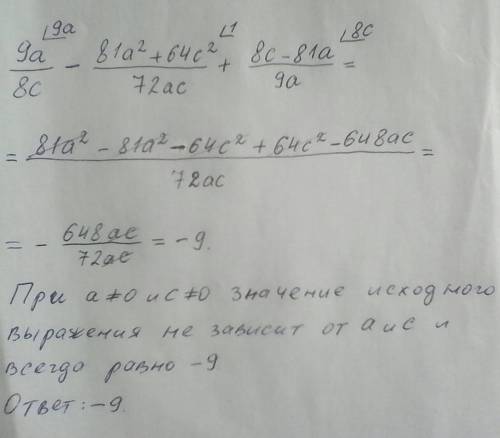 9a/8c ⌊9a − (81a² + 64c²)/72ac ⌊1 + (8c − 81a)/9a ⌊8c =
= (81a² − 81a² − 64c² + 64c² − 648ac)/72ac =
= − 648ac/72ac = −9.
При a ≠ 0 и c ≠ 0 значение исходного
выражения не зависит от a и c и
всегда равно −9
Ответ: −9.